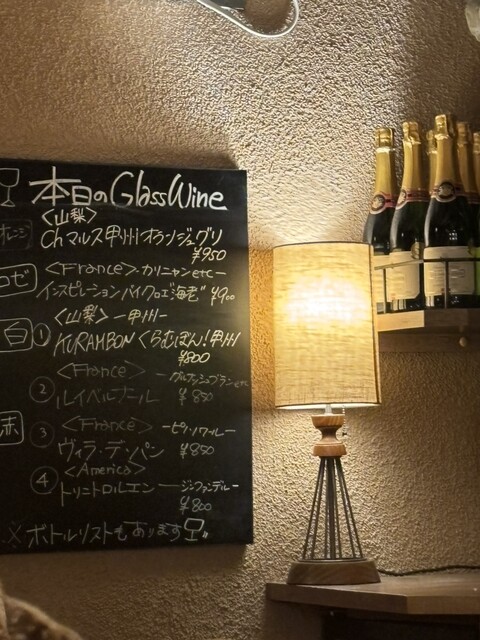 本日のGlassWine
オレンジ
〈山梨〉
Ch マルス 甲州オランジュグリ
¥950
ロゼ
〈France〉-カリニャンetc-
インスピレーションバイクロエ"海老" ¥900
〈山梨〉 -甲州-
白 ①
KURAMBON くらむぼん!甲州
¥800
〈France〉
②
ルイペルナール ¥850
赤 ③
〈France〉 -ピノ・ノワール-
ヴィラ・デ・パン ¥850
〈America〉
④
トリニトロルエン -ジンファンデル-
¥800
※ボトルリストもあります